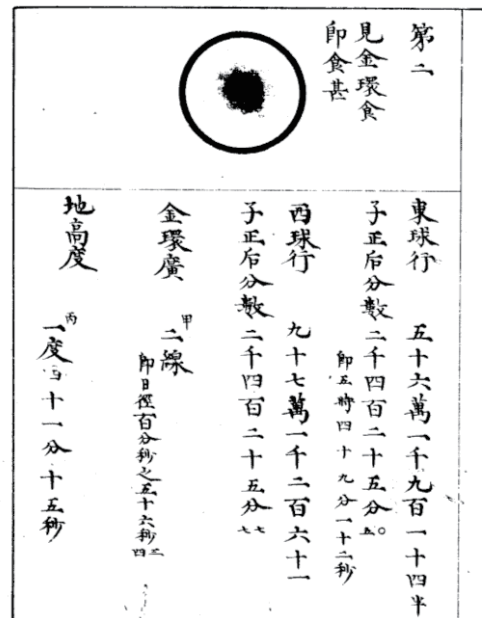 第二
見金環食
即食甚
東球行 五十六萬一千九百一十四半
子正后分數 二千四百二十五分五〇
即五時四十九分一十二秒
西球行 九十七萬一千二百六十一
子正后分數 二千四百二十五分七七
金環廣 甲二線
即日徑百分秒之五十六秒三四
地高度 丙一度四十一分十五秒